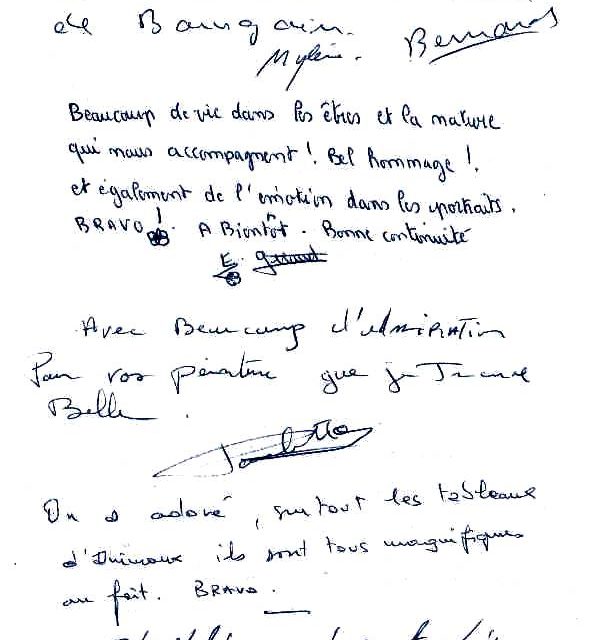 de Bourgoin.
Mylène. Bernard
Beaucoup de vie dans les êtres et la nature
qui nous accompagnent ! Bel hommage !
et également de l'émotion dans les portraits.
BRAVO ! A Bientôt. Bonne continuité
E.
Avec Beaucoup d'admiration
Pour vos peinture que je Trouve
Belle.
On a adoré, surtout les tableaux
d'Animaux ils sont tous magnifiques
au fait. BRAVO.